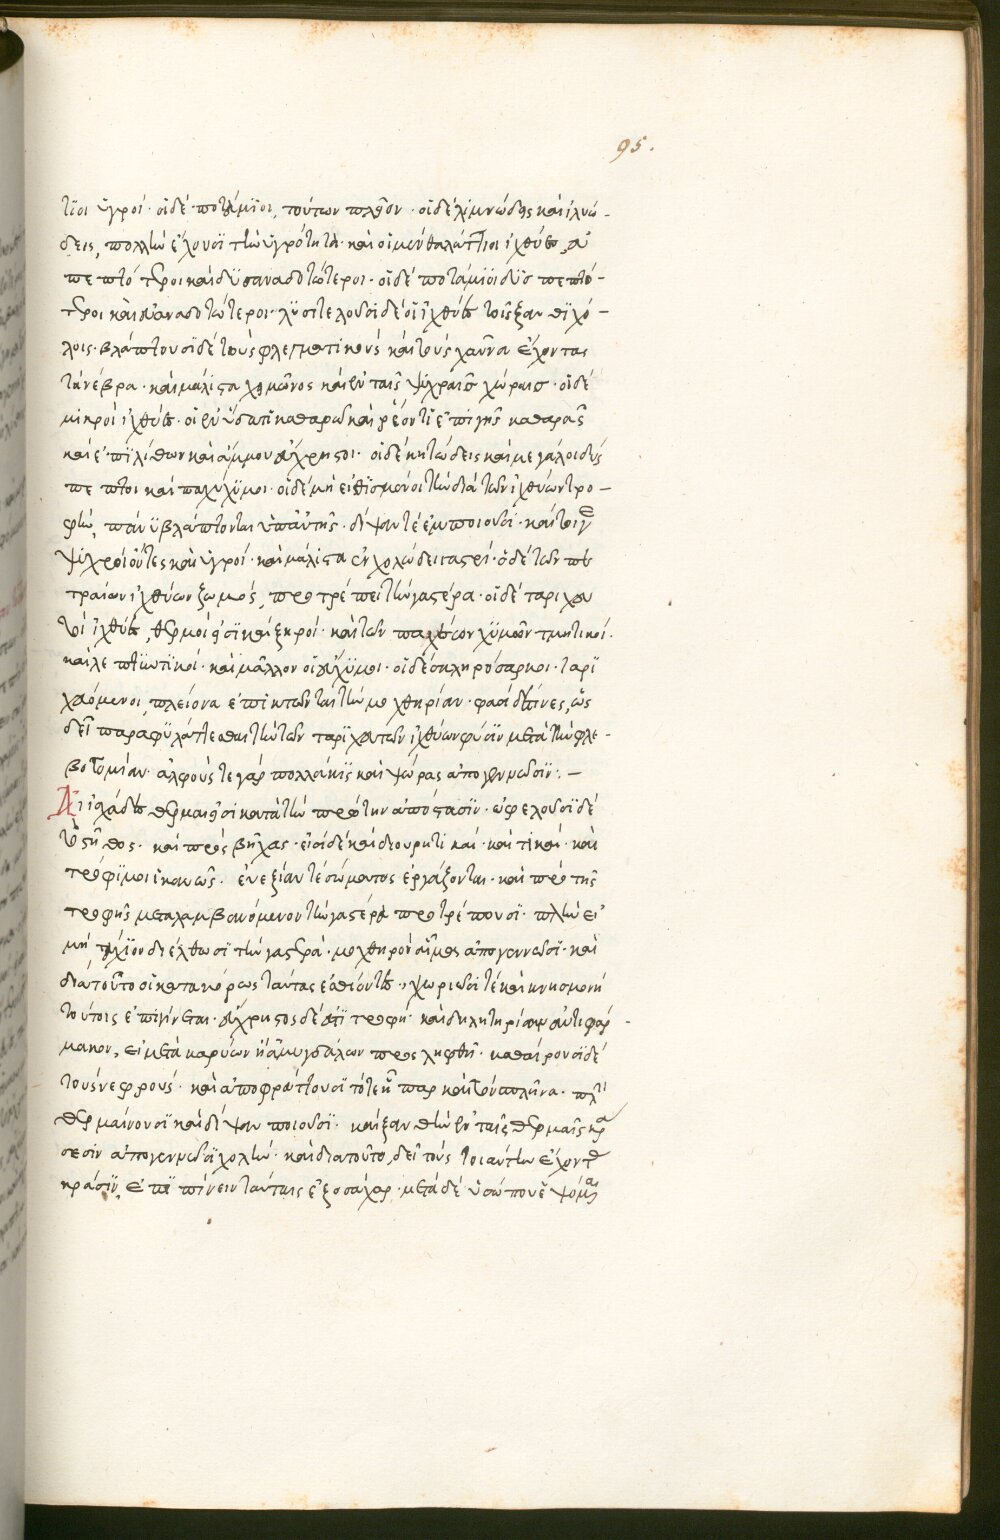 95.
τιοι ὑγροί· οἱ δὲ ποτάμιοι, τούτων πλεῖον· οἱ δὲ λιμνώδεις καὶ ἰλυώ-
δεις, πολλὴν ἔχουσι τὴν ὑγρότητα· καὶ οἱ μὲν θαλάττιοι ἰχθύες, εὐ
πεπτότεροι καὶ δυσαναδοτώτεροι· οἱ δὲ ποτάμιοι δυσπεπτό-
τεροι καὶ εὐαναδοτώτεροι· λυσιτελοῦσι δὲ οἱ ἰχθύες τοῖς ξανθιχό-
λοις· βλάπτουσι δὲ τοὺς φλεγματικοὺς καὶ τοὺς χαῦνα ἔχοντας
τὰ νεῦρα· καὶ μάλιστα χειμῶνος καὶ ἐν ταῖς ψυχραῖς χώραις· οἱ δὲ
μικροὶ ἰχθύες· οἱ ἐν ὕδατι καθαρῷ καὶ ῥέοντι ἐπὶ γῆς καθαρᾶς
καὶ ἐπὶ λίθων καὶ ἄμμου εὔχρηστοι· οἱ δὲ κητώδεις καὶ μεγάλοι δύς
πεπτοι καὶ παχύχυμοι· οἱ δὲ μὴ εἰθισμένοι τὴν διὰ τῶν ἰχθύων τρο-
φὴν, πάνυ βλάπτονται ὑπ' αὐτῆς· δίψαν τὲ ἐμποιοῦσι· καίτοι γε
ψυχροὶ ὄντες καὶ ὑγροί· καὶ μάλιστα ἐν χολώδει γαστρί· ὁ δὲ τῶν πε
τραίων ἰχθύων ζωμός, προτρέπει τὴν γαστέρα· οἱ δὲ ταριχευ
τοὶ ἰχθύες, θερμοί εἰσι καὶ ξηροί· καὶ τῶν παχέων χυμῶν τμητικοί·
καὶ λεπτυντικοί· καὶ μᾶλλον οἱ εὔχυμοι· οἱ δὲ σκληρόσαρκοι· ταρι
χευόμενοι, πλείονα ἐπικτῶνται τὴν μοχθηρίαν· φασὶ δέ τινες, ὡς
δεῖ παραφυλάττεσθαι τὴν τῶν ταριχευτῶν ἰχθύων φύσιν μετὰ τὴν φλε-
βοτομίαν· ἀλφοὺς τε γὰρ πολλάκις καὶ ψώρας ἀπογεννῶσιν:-
Αἱ ἰσχάδες θερμαί εἰσι κατὰ τὴν πρώτην ἀπόστασιν· ὠφελοῦσι δὲ
τὸ στῆθος· καὶ πρὸς βῆχας· εἰσὶ δὲ καὶ διουρητικαί· καὶ τικαί· καὶ
τρόφιμοι ἱκανῶς· εὐεξίαν τὲ σώματος ἐργάζονται· καὶ πρὸ τῆς
τροφῆς μεταλαμβανόμενον τὴν γαστέρα προτρέπουσι· πλὴν εἰ
μὴ τάχιον διέλθωσι τὴν γαστέρα· μοχθηρὸν αἷμα ἀπογεννῶσι· καὶ
διὰ τοῦτο οἱ κατακόρως ταύτας ἐσθίοντες, ἰχωριῶσί τε καὶ κνησμονὴ
τούτοις ἐπιγίνεται· εὔχρηστος δέ ἐστι τροφή· καὶ δηλητηρίων ἀντιφάρ-
μακον, εἰ μετὰ καρύων ἢ ἀμυγδάλων προσληφθῆ· καθαίρουσι δὲ
τοὺς νεφρούς· καὶ ἀποφράττουσι τό τε ἧπαρ καὶ τὸν σπλῆνα· πλὴν
θερμαίνουσι καὶ δίψαν ποιοῦσι· καὶ ξανθὴν ἐν ταῖς θερμαῖς κρά
σεσιν ἀπογεννῶσι χολήν· καὶ διὰ τοῦτο, δεῖ τοὺς τοιαύτην ἔχοντας
κρᾶσιν, ἐπιπίνειν ταύταις ὀξοσάχαρ· μετὰ δὲ ὑσώπου ἑψόμεναι